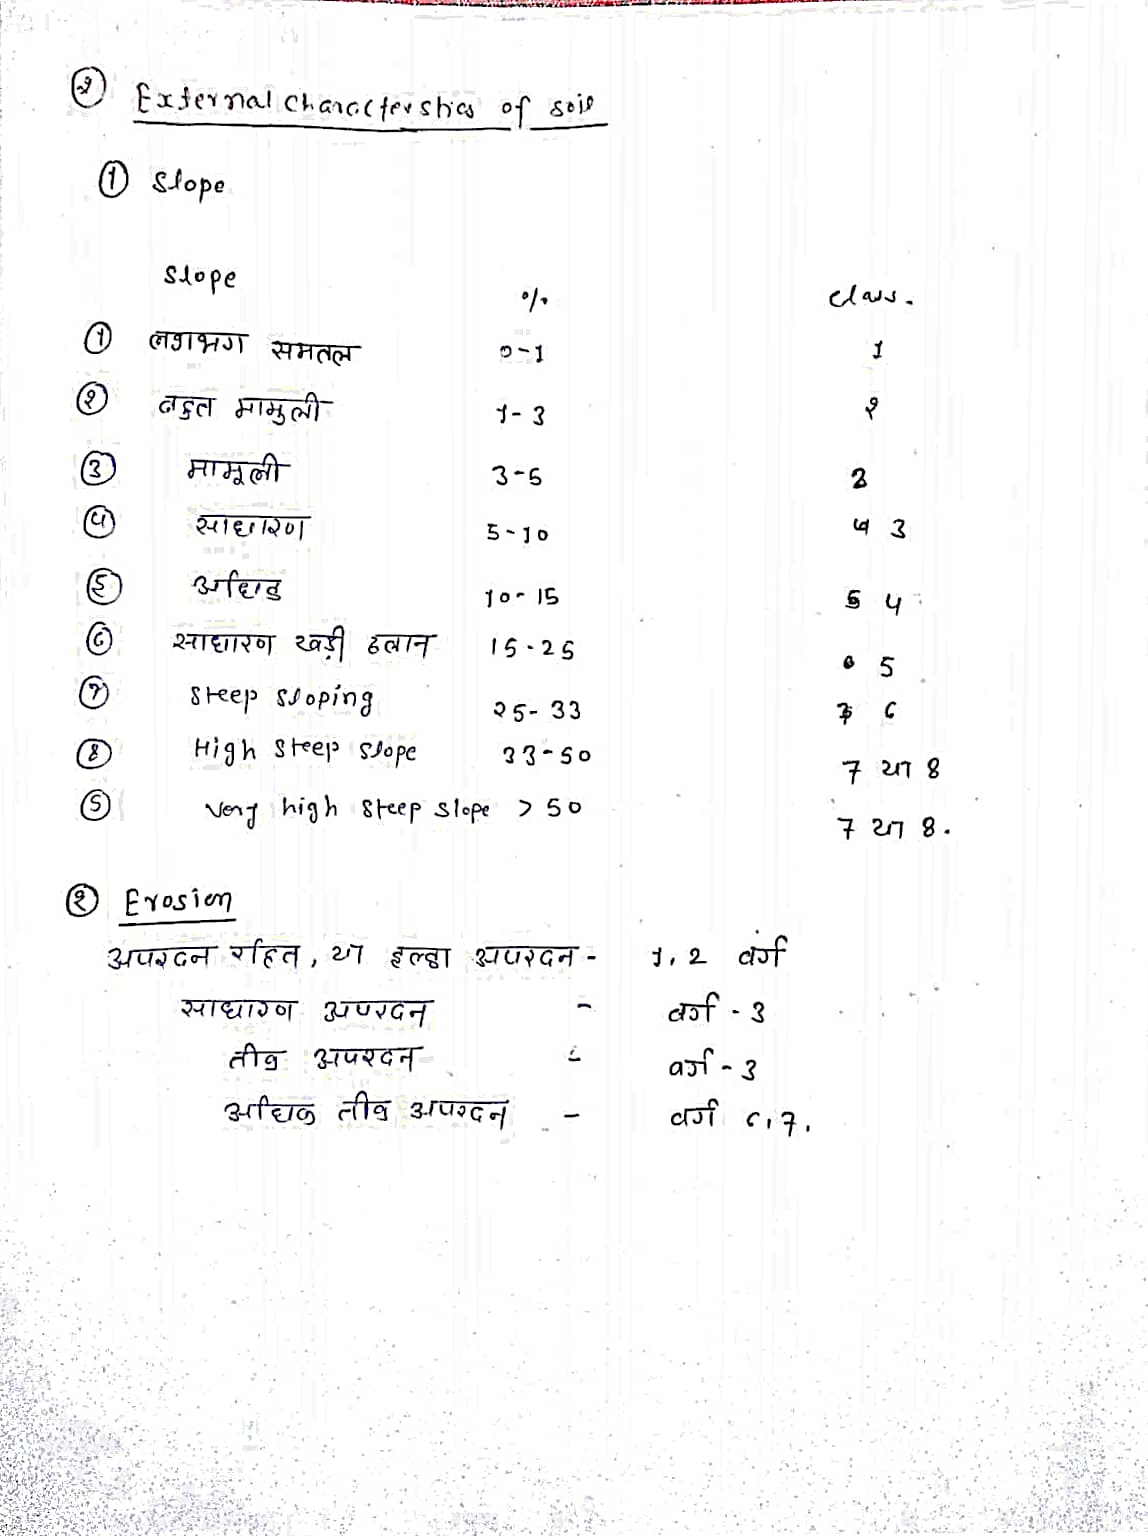 ② External characterstics of soil
① Slope
Slope % class.
① लगभग समतल 0-1 1
② बहुत मामुली 1-3 2
③ मामूली 3-5 2
④ साधारण 5-10 3
⑤ अधिक 10-15 4
⑥ साधारण खड़ी ढलान 15-25 5
⑦ Steep sloping 25-33 6
⑧ High steep slope 33-50 7 या 8
⑨ Very high steep slope > 50 7 या 8.
② Erosion
अपरदन रहित, या हल्का अपरदन - 1, 2 वर्ग
साधारण अपरदन - वर्ग - 3
तीव्र अपरदन - वर्ग - 3
अधिक तीव्र अपरदन - वर्ग 6,7.